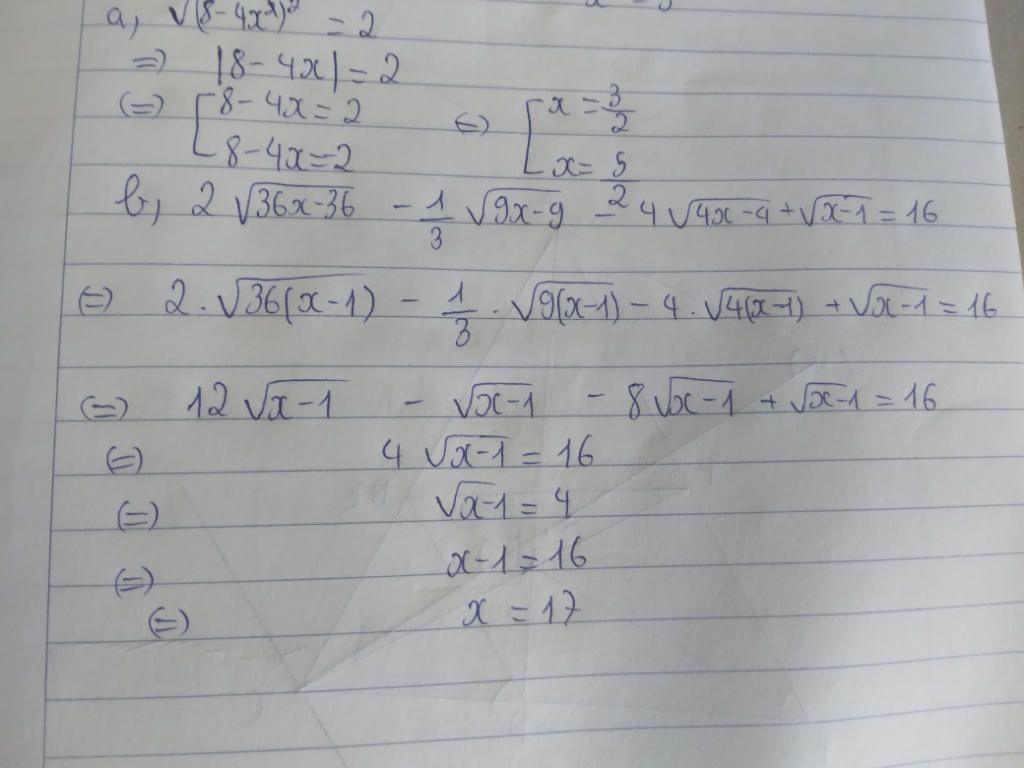 a, √(8-4x)² = 2
=> |8-4x| = 2
(=) [ 8-4x = 2 (=) [ x = 3/2
8-4x = -2 x = 5/2
b, 2 √36x-36 - 1/3 √9x-9 - 4 √4x-4 + √x-1 = 16
(=) 2 . √36(x-1) - 1/3 . √9(x-1) - 4 . √4(x-1) + √x-1 = 16
(=) 12 √x-1 - √x-1 - 8 √x-1 + √x-1 = 16
(=) 4 √x-1 = 16
(=) √x-1 = 4
(=) x-1 = 16
(=) x = 17